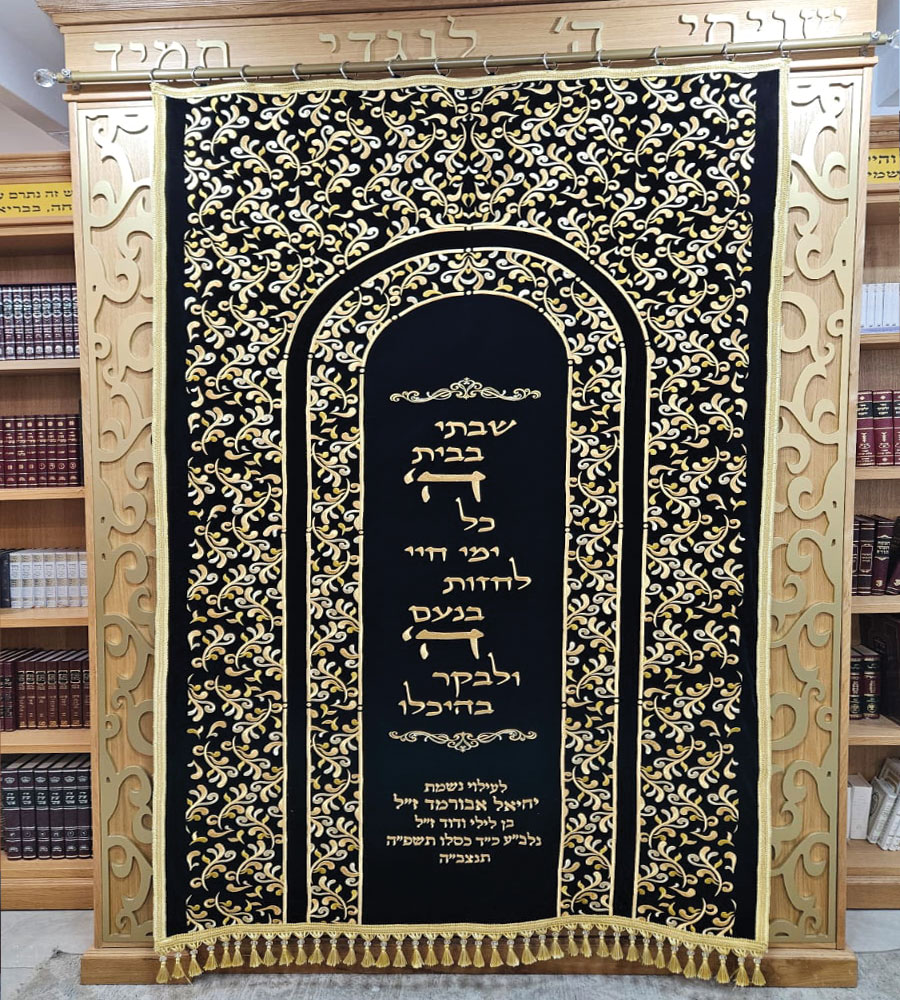 שויתי ה' לנגדי תמיד
והי
קשמי
ש זה נתרם ע
חה, בבריא
שבתי
בבית
ה'
כל
ימי חיי
לחזות
בנעם
ה'
ולבקר
בהיכלו
לעילוי נשמת
יחיאל אבורמד ז״ל
בן לילי ודוד ז״ל
נלב״ע כ״ד כסלו תשפ״ה
תנצב״ה